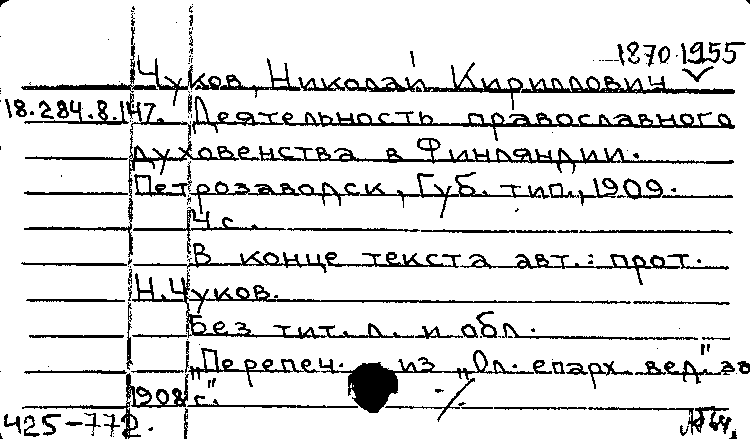 1870 1955
Чуков, Николай Кириллович
18.284.8.147. Деятельность православного
духовенства в Финляндии.
Петрозаводск, Губ. тип., 1909.
4 с.
В конце текста авт.: прот.
Н. Чуков.
Без тит. л. и обл.
„Перепеч. из „Ол. епарх. вед." за
1908 г."
425-772.